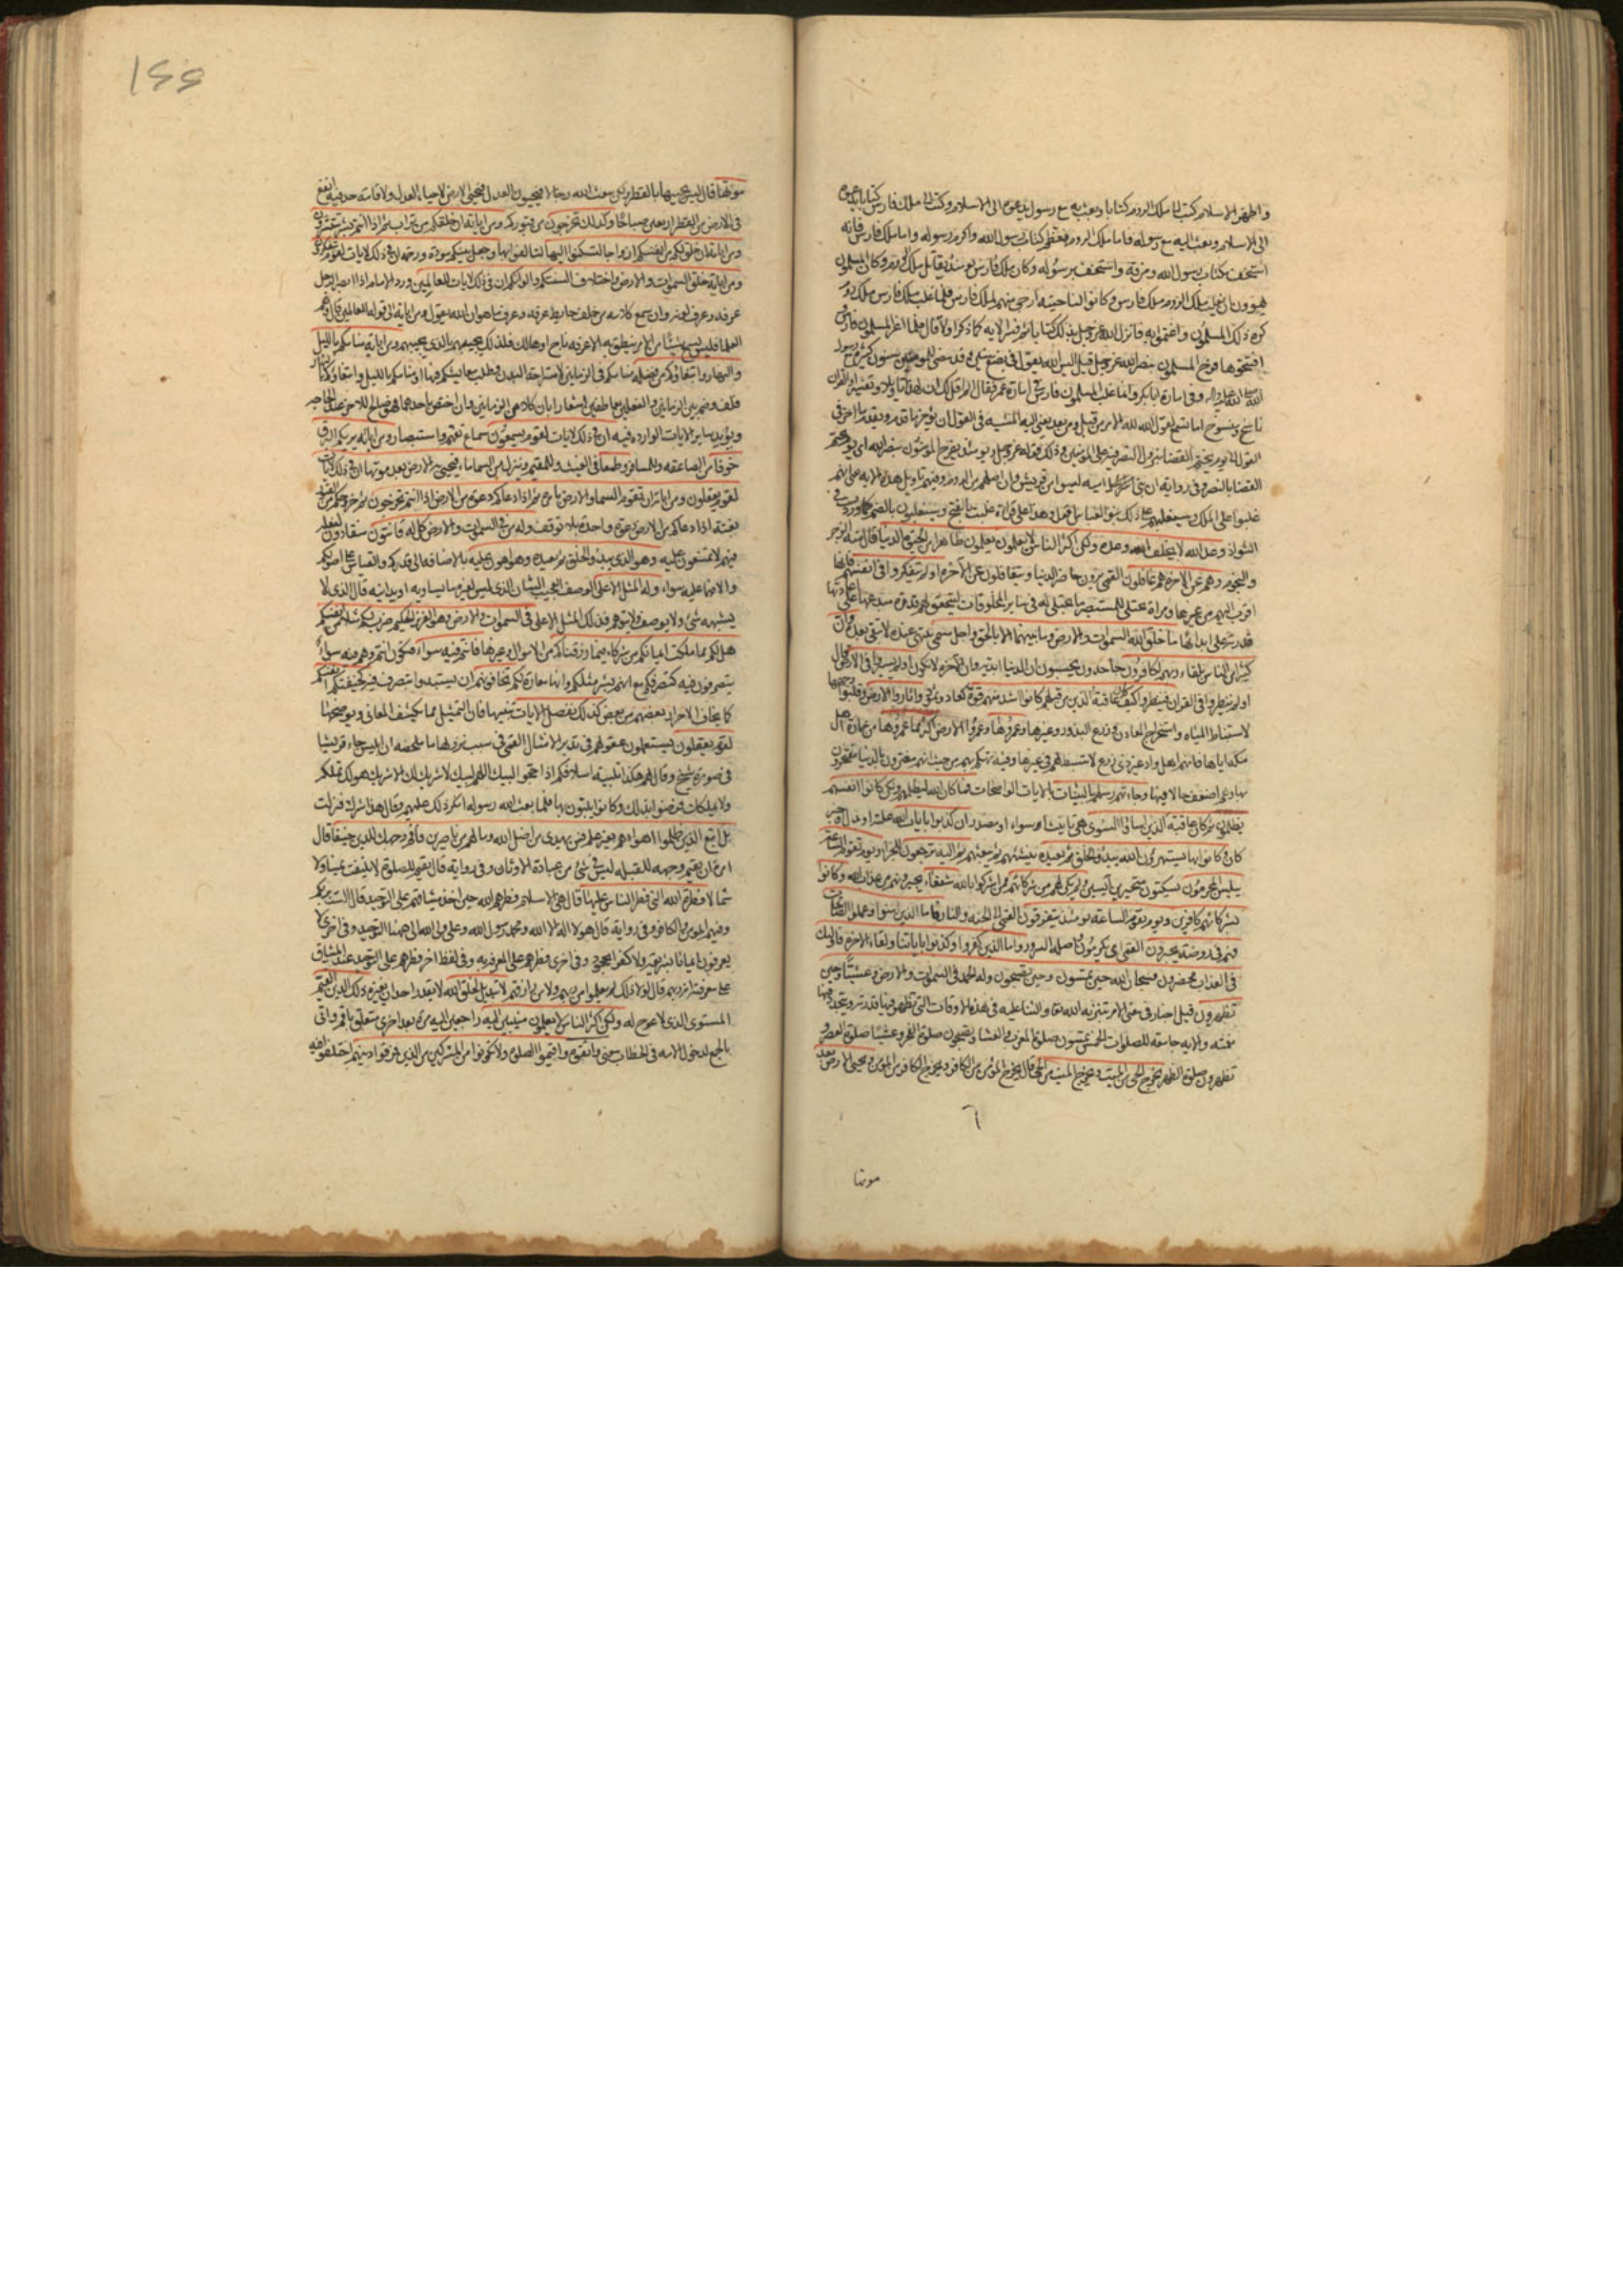 واظهر الاسلام كتب الى ملك الروم كتابا وبعث به مع رسول يدعوه الى الاسلام وكتب الى ملك فارس كتابا يدعوه
الى الاسلام وبعث اليه مع رسوله فاما ملك الروم فعظم كتاب رسول الله واكرم رسوله واما ملك فارس فانه
استخف بكتاب رسول الله ومزقه واستخف برسوله وكان ملك فارس يومئذ يقاتل ملك الروم وكان المسلمون
يهوون ان يغلب ملك الروم ملك فارس وكانوا لناحيته ارجى منهم لملك فارس فلما غلب ملك فارس ملك الروم
كره ذلك المسلمون واغتموا به فانزل الله عز وجل بذلك كتابا ثم فسر الاية كما ذكر اولا قال فلما غزا المسلمون فارس
افتتحوها ففرح المسلمون بنصر الله عز وجل قيل اليس الله يقول في بضع سنين وقد مضى للمؤمنين سنون كثيرة مع رسول
الله صلى الله عليه واله وفي امارة ابي بكر وانما غلب المسلمون فارس في امارة عمر فقال الم اقل لك ان لهذا تاويلا وتفسيرا والقران
ناسخ ومنسوخ اما تسمع لقول الله لله الامر من قبل ومن بعد يعني اليه المشية في القول ان يؤخر ما قدم ويقدم ما اخر في
القول الى يوم يحتم القضاء بنزول النصر فيه على المؤمنين وذلك قوله عز وجل ويومئذ يفرح المؤمنون بنصر الله اي يوم يحتم
القضاء بالنصر وفي رواية ان بني امية ليسوا من قريش وان اصلهم من الروم وفيهم تاويل هذه الاية على انهم
غلبوا على الملك وسيغلبهم على ذلك بنو العباس اقول وهذا على قراءة غلبت بالفتح وسيغلبون بالضم كما ورد في
الشواذ وعد الله لا يخلف الله وعده ولكن اكثر الناس لا يعلمون يعلمون ظاهرا من الحيوة الدنيا قال منه الزجر
والنجوم وهم عن الاخرة هم غافلون القمي يرون حاضر الدنيا ويتغافلون عن الاخرة اولم يتفكروا في انفسهم فانها
اقرب اليهم من غيرها ومراة يجتلى للمستبصر ما يجتلى له في سائر المخلوقات ليتحقق لهم قدرة مبدعها على اعادتها
قدرته على ابدائها ما خلق الله السموات والارض وما بينهما الا بالحق واجل مسمى ينتهي عنده لا يبقى بعده وان
كثيرا من الناس بلقاء ربهم لكافرون جاحدون يحسبون ان الدنيا ابدية وان الاخرة لا تكون اولم يسيروا في الارض قال
اولم ينظروا في القران فينظروا كيف كان عاقبة الذين من قبلهم كانوا اشد منهم قوة كعاد وثمود واثاروا الارض وقلبوا وجهها
لاستنباط المياه واستخراج المعادن وزرع البذور وغيرها وعمروها وعمروا الارض اكثر مما عمروها من عمارة اهل
مكة اياها فانهم اهل واد غير ذي زرع لا تبسط لهم في غيرها وفيه تهكم بهم من حيث انهم مغترون بالدنيا مفتخرون
بها وهم اضعف حالا فيها وجاءتهم رسلهم بالبينات بالايات الواضحات فما كان الله ليظلمهم ولكن كانوا انفسهم
يظلمون ثم كان عاقبة الذين اساؤا السوءى هي تانيث اسوء او مصدر ان كذبوا بايات الله علة او بدل او خبر
كان وكانوا بها يستهزؤن الله يبدؤ الخلق ثم يعيده ينشئهم ثم يبعثهم ثم اليه ترجعون للجزاء ويوم تقوم الساعة
يبلس المجرمون يسكتون متحيرين ايسين ولم يكن لهم من شركائهم ممن اشركوا بالله شفعاء يجيرونهم من عذاب الله وكانوا
بشركائهم كافرين ويوم تقوم الساعة يومئذ يتفرقون القمي الى الجنة والنار فاما الذين امنوا وعملوا الصالحات
فهم في روضة يحبرون القمي اي يكرمون واصله السرور واما الذين كفروا وكذبوا باياتنا ولقاء الاخرة فاولئك
في العذاب محضرون فسبحان الله حين تمسون وحين تصبحون وله الحمد في السموات والارض وعشيا وحين
تظهرون قيل اخبار في معنى الامر بتنزيه الله تعالى والثناء عليه في هذه الاوقات التي تظهر فيها قدرته وتجدد فيها
نعمته والاية جامعة للصلوات الخمس تمسون صلوة المغرب والعشاء وتصبحون صلوة الفجر وعشيا صلوة العصر و
تظهرون صلوة الظهر يخرج الحي من الميت ويخرج الميت من الحي قال يخرج المؤمن من الكافر ويخرج الكافر من المؤمن ويحيي الارض بعد
٦
موتها
١٤٤
موتها قال ليس يحييها بالقطر ولكن يبعث الله رجالا فيحيون العدل فتحيى الارض لاحياء العدل ولاقامة حد فيه انفع
في الارض من القطر اربعين صباحا وكذلك تخرجون من قبوركم ومن اياته ان خلقكم من تراب ثم اذا انتم بشر تنتشرون
ومن اياته ان خلق لكم من انفسكم ازواجا لتسكنوا اليها لتالفوا بها وجعل بينكم مودة ورحمة ان في ذلك لايات لقوم يتفكرون
ومن اياته خلق السموات والارض واختلاف السنتكم والوانكم ان في ذلك لايات للعالمين ورد الامام اذا ابصر الرجل
عرفه وعرف لونه وان سمع كلامه من خلف حايط عرفه وعرف ما هو ان الله يقول ومن اياته الى قوله للعالمين قال وهم
العلماء فليس يسمع شيئا من الامر ينطق به الا عرفه ناج او هالك فلذلك يجيبهم بالذي يجيبهم ومن اياته منامكم بالليل
والنهار وابتغاؤكم من فضله منامكم في الزمانين لاستراحة البدن وطلب معاشكم فيها او منامكم بالليل وابتغاؤكم بالنهار
فلف وضم بين الزمانين والفعلين بعاطفين اشعارا بان كلا من الزمانين وان اختص باحدهما فهو صالح للاخر عند الحاجة
ويؤيده سائر الايات الواردة فيه ان في ذلك لايات لقوم يسمعون سماع تفهم واستبصار ومن اياته يريكم البرق
خوفا من الصاعقة وللمسافر وطمعا في الغيث وللمقيم وينزل من السماء ماء فيحيي به الارض بعد موتها ان في ذلك لايات
لقوم يعقلون ومن اياته ان تقوم السماء والارض بامره ثم اذا دعاكم دعوة من الارض اذا انتم تخرجون ثم خروجكم من القبور
بغتة اذا دعاكم من الارض دعوة واحدة بلا توقف وله من في السموات والارض كل له قانتون منقادون لفعله
فيهم لا يمتنعون عليه وهو الذي يبدؤ الخلق ثم يعيده وهو اهون عليه بالاضافة الى قدركم والقياس على اصولكم
والا فهما عليه سواء وله المثل الاعلى الوصف العجيب الشان الذي ليس لغيره ما يساويه او يدانيه قال الذي لا
يشبهه شئ ولا يوصف ولا يتوهم فذلك المثل الاعلى في السموات والارض وهو العزيز الحكيم ضرب لكم مثلا من انفسكم
هل لكم مما ملكت ايمانكم من شركاء فيما رزقناكم من الاموال وغيرها فانتم فيه سواء فتكون انتم وهم فيه سواء
يتصرفون فيه كتصرفكم مع انهم بشر مثلكم وانها معارة لكم تخافونهم ان يستبدوا بتصرف فيه كخيفتكم انفسكم
كما يخاف الاحرار بعضهم من بعض كذلك نفصل الايات نبينها فان التمثيل مما يكشف المعاني ويوضحها
لقوم يعقلون يستعملون عقولهم في تدبر الامثال القمي في سبب نزولها ما ملخصه ان ابليس جاء قريشا
في صورة شيخ وقال لهم هكذا تلبية اسلافكم اذا حجوا لبيك اللهم لبيك لا شريك لك الا شريك هو لك تملكه
وما يملكان فرضوا بذلك وكانوا يلبون بها فلما بعث الله رسوله انكر ذلك عليهم وقال هذا شرك فنزلت
بل اتبع الذين ظلموا اهواءهم بغير علم فمن يهدي من اضل الله وما لهم من ناصرين فاقم وجهك للدين حنيفا قال
امره ان يقيم وجهه للقبلة ليس فيه شئ من عبادة الاوثان وفي رواية قال يقيم للصلوة لا يلتفت يمينا ولا
شمالا فطرة الله التي فطر الناس عليها قال هي الاسلام فطرهم الله حين اخذ ميثاقهم على التوحيد قال الست بربكم
وفيهم المؤمن والكافر وفي رواية قال هو لا اله الا الله ومحمد رسول الله وعلي ولي الله الى هيهنا التوحيد وفي اخرى لا
يعرفون ايمانا بشريعة ولا كفرا بجحود وفي اخرى فطرهم على المعرفة به وفي لفظ اخر فطرهم على التوحيد عند الميثاق
على معرفته انه ربهم قال لولا ذلك لم يعلموا من ربهم ولا من رازقهم لا تبديل لخلق الله لا يقدر احد ان يغيره ذلك الدين القيم
المستوي الذي لا عوج له ولكن اكثر الناس لا يعلمون منيبين اليه راجعين اليه مرة بعد اخرى متعلق باقم واتى
بالجمع لدخول الامة في الخطاب معنى واتقوه واقيموا الصلوة ولا تكونوا من المشركين من الذين فرقوا دينهم اختلفوا فيه